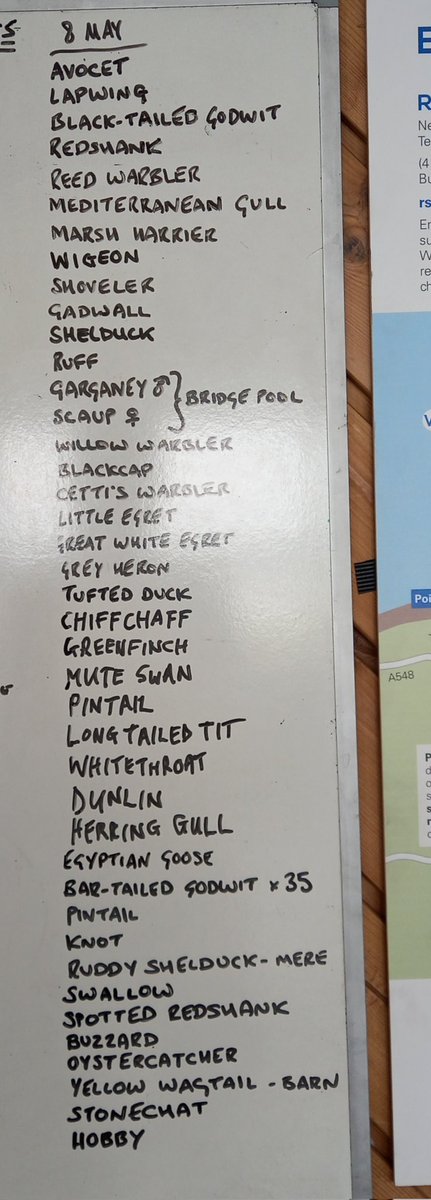 8 MAY
AVOCET
LAPWING
BLACK-TAILED GODWIT
REDSHANK
REED WARBLER
MEDITERRANEAN GULL
MARSH HARRIER
WIGEON
SHOVELER
GADWALL
SHELDUCK
RUFF
GARGANEY ♂ } BRIDGE POOL
SCAUP ♀
WILLOW WARBLER
BLACKCAP
CETTI'S WARBLER
LITTLE EGRET
GREAT WHITE EGRET
GREY HERON
TUFTED DUCK
CHIFFCHAFF
GREENFINCH
MUTE SWAN
PINTAIL
LONG TAILED TIT
WHITETHROAT
DUNLIN
HERRING GULL
EGYPTIAN GOOSE
BAR-TAILED GODWIT x 35
PINTAIL
KNOT
RUDDY SHELDUCK - MERE
SWALLOW
SPOTTED REDSHANK
BUZZARD
OYSTERCATCHER
YELLOW WAGTAIL - BARN
STONECHAT
HOBBY
A548